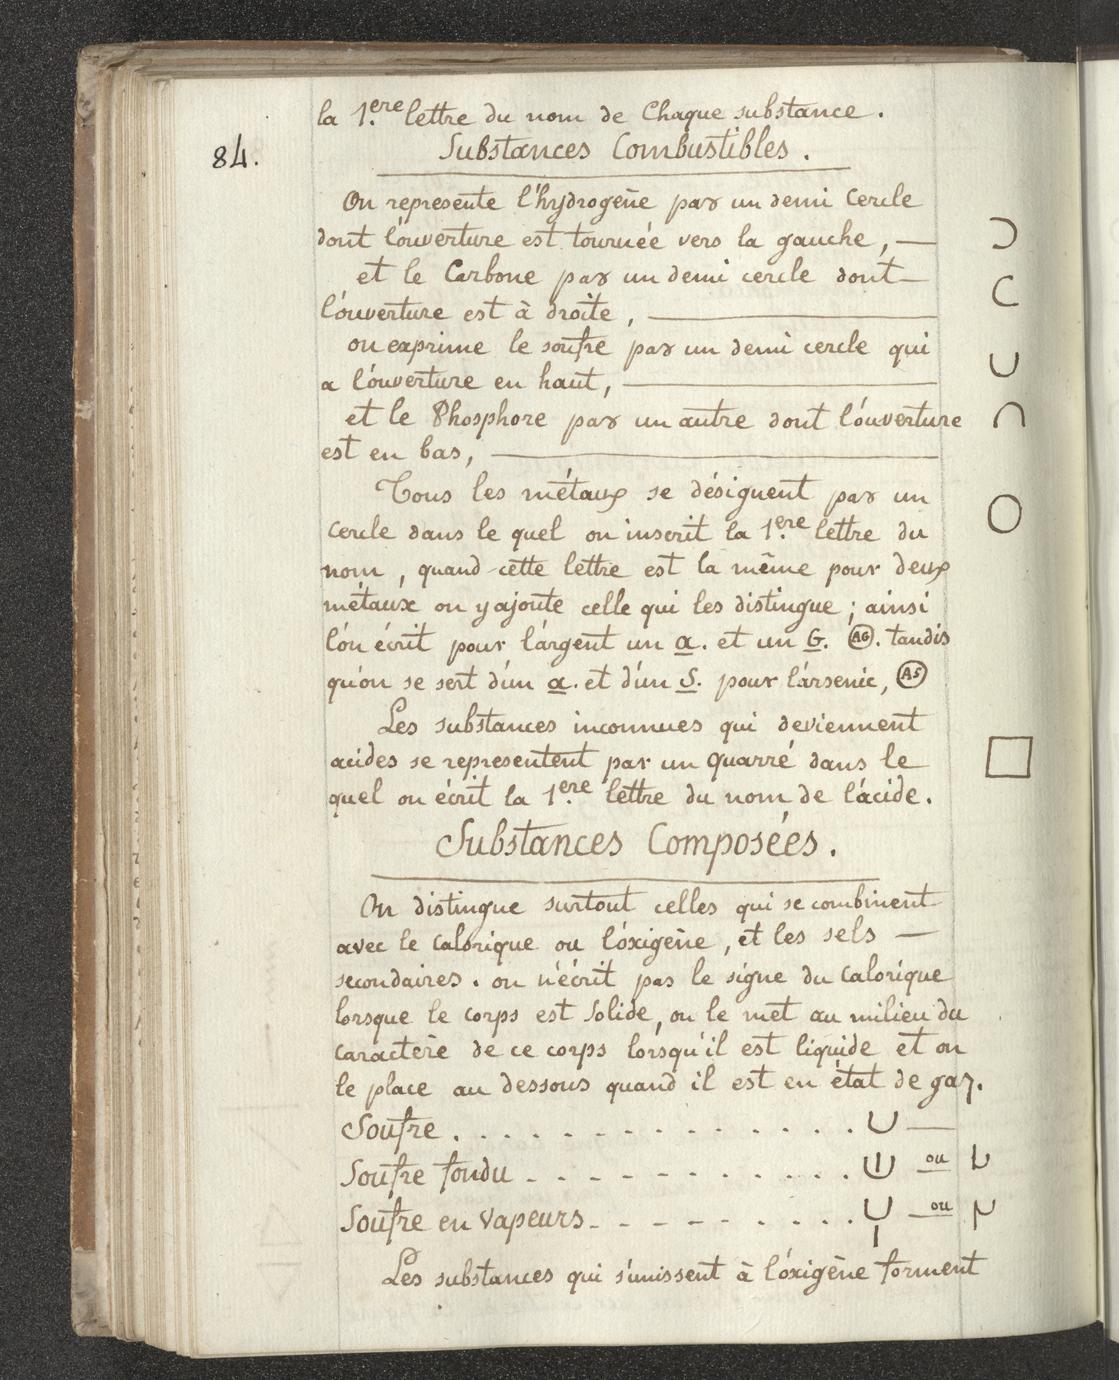 la 1.ere lettre du nom de Chaque substance.
84.
Substances Combustibles.
On represente l'hydrogène par un demi Cercle
dont l'ouverture est tournée vers la gauche, —
et le Carbone par un demi cercle dont —
l'ouverture est à droite, —
on exprime le soufre par un demi cercle qui
a l'ouverture en haut, —
et le Phosphore par un autre dont l'ouverture
est en bas, —
Tous les métaux se désignent par un
cercle dans le quel on inscrit la 1.ere lettre du
nom, quand cette lettre est la même pour deux
métaux on y ajoute celle qui les distingue; ainsi
l'on écrit pour l'argent un a. et un G. AG. tandis
qu'on se sert d'un a. et d'un S. pour l'arsenic, AS
Les substances inconnues qui deviennent
acides se representent par un quarré dans le
quel on écrit la 1.ere lettre du nom de l'acide.
Substances Composées.
On distingue surtout celles qui se combinent
avec le Calorique ou l'oxigène, et les sels —
secondaires. on n'écrit pas le signe du Calorique
lorsque le corps est solide, on le met au milieu du
caractère de ce corps lorsqu'il est liquide et on
le place au dessous quand il est en état de gaz.
Soufre . . . . . . . . . . . . . . .
Soufre fondu - - - - - - - - - - . ou
Soufre en vapeurs - - - - - - - - . ou
Les substances qui s'unissent à l'oxigène forment